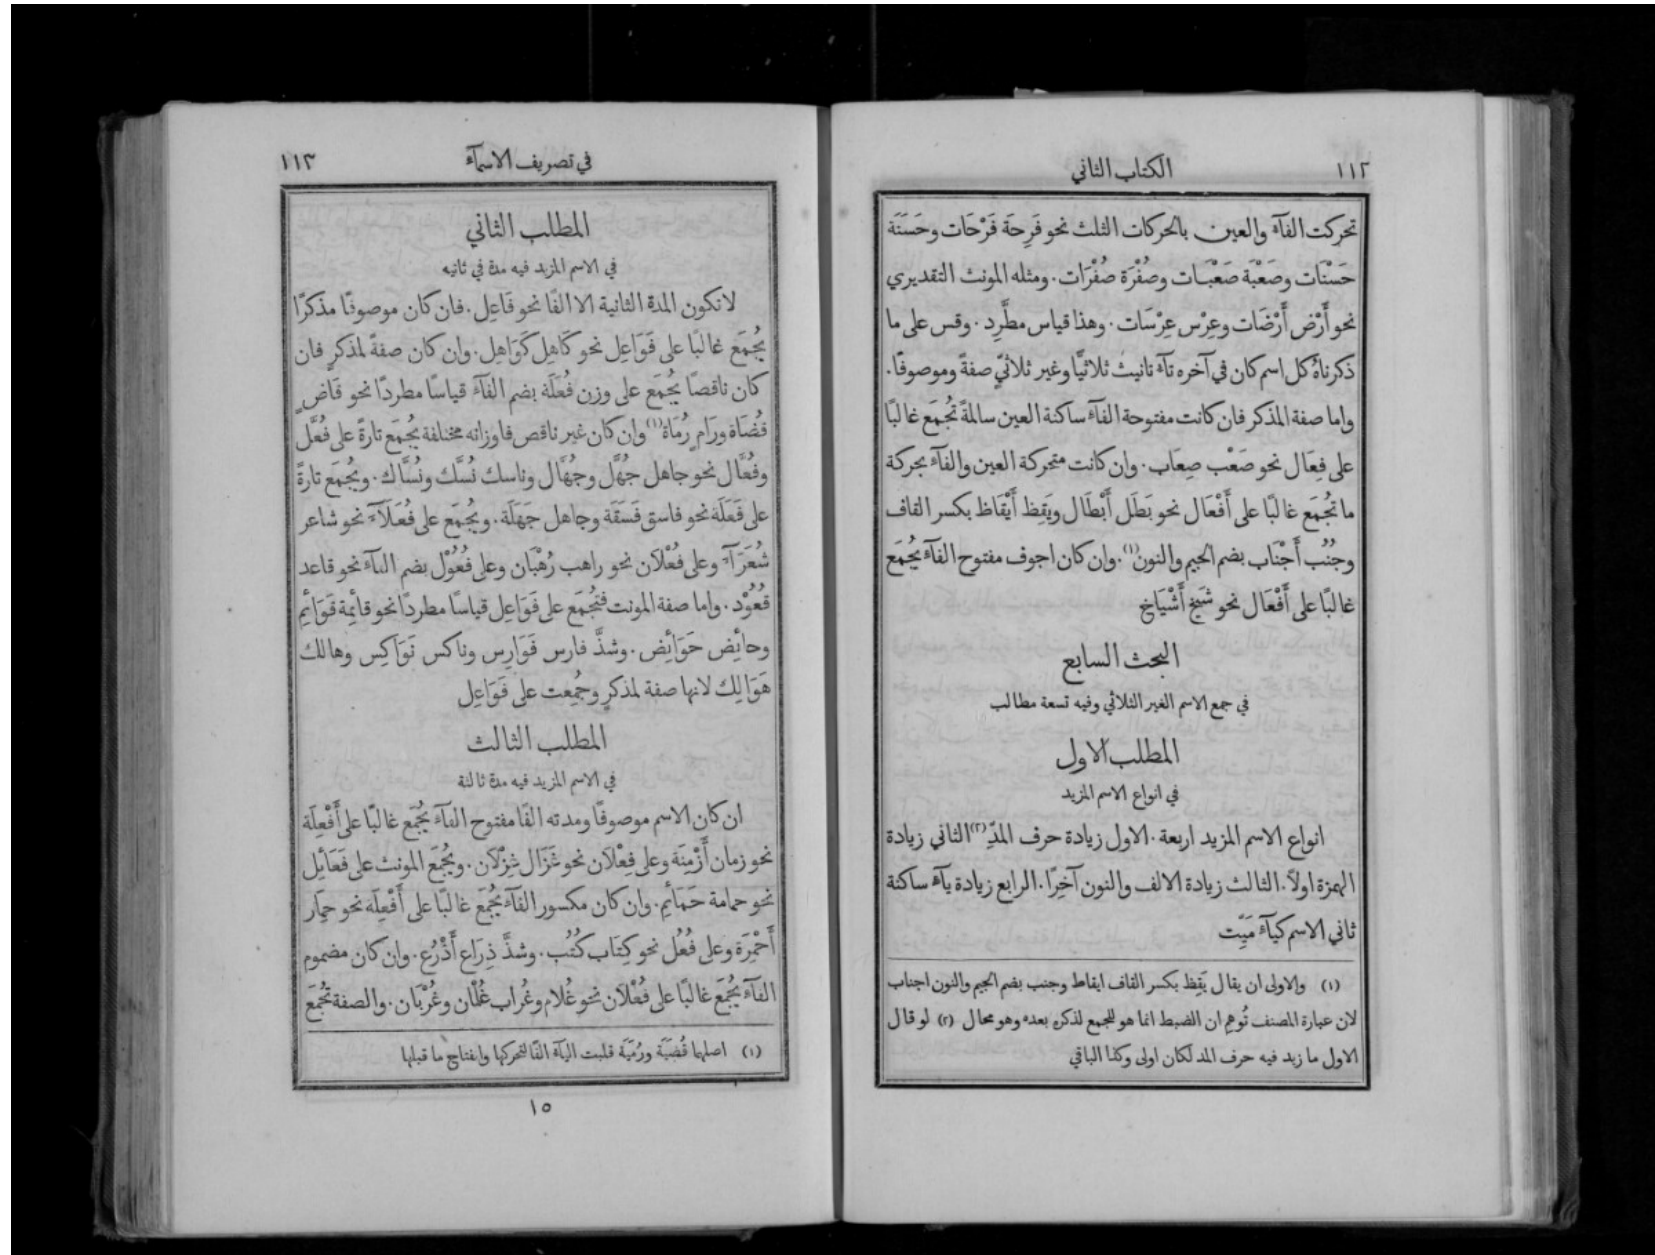 ١١٢
الكتاب الثاني
تحركت الفآء والعين بالحركات الثلث نحو فَرِحَة فَرْحَات وحَسَنَة
حَسْنَات وصَعْبَة صَعْبَات وصُفْرَة صُفْرَات. ومثله المونث التقديري
نحو أَرْض أَرْضَات وعِرْس عِرْسَات. وهذا قياس مطَّرِد. وقس على ما
ذكرناهُ كل اسم كان في آخره تآء تانيث ثلاثيًّا وغير ثلاثيٍّ صفةً وموصوفًا.
واما صفة المذكر فان كانت مفتوحة الفآء ساكنة العين سالمةً تُجْمَع غالبًا
على فِعَال نحو صَعْب صِعَاب. وان كانت متحركة العين والفآء بحركة
ما تُجْمَع غالبًا على أَفْعَال نحو بَطَل أَبْطَال ويَقِظ أَيْقَاظ بكسر القاف
وجُنُب أَجْنَاب بضم الجيم والنون(١). وان كان اجوف مفتوح الفآء يُجْمَع
غالبًا على أَفْعَال نحو شَيْخ أَشْيَاخ
البحث السابع
في جمع الاسم الغير الثلاثي وفيه تسعة مطالب
المطلب الاول
في انواع الاسم المزيد
انواع الاسم المزيد اربعة. الاول زيادة حرف المدِّ(٢) الثاني زيادة
الهمزة اولاً. الثالث زيادة الالف والنون آخِرًا. الرابع زيادة يآء ساكنة
ثاني الاسم كيآء مَيِّت
(١) والاولى ان يقال يَقِظ بكسر القاف ايقاظ وجنب بضم الجيم والنون اجناب
لان عبارة المصنف تُوهِم ان الضبط انما هو للجمع لذكره بعده وهو محال (٢) لو قال
الاول ما زيد فيه حرف المد لكان اولى وكذا الباقي
في تصريف الاسمآء
١١٣
المطلب الثاني
في الاسم المزيد فيه مدة في ثانيه
لا تكون المدة الثانية الا الفًا نحو فَاعِل. فان كان موصوفًا مذكرًا
يُجْمَع غالبًا على فَوَاعِل نحو كَاهِل كَوَاهِل. وان كان صفةً لمذكرٍ فان
كان ناقصًا يُجْمَع على وزن فُعَلَة بضم الفآء قياسًا مطردًا نحو قَاضٍ
قُضَاة ورَامٍ رُمَاة(١) وان كان غير ناقص فاوزانه مختلفة يُجْمَع تارةً على فُعَّل
وفُعَّال نحو جاهل جُهَّل وجُهَّال وناسك نُسَّك ونُسَّاك. ويُجْمَع تارةً
على فَعَلَة نحو فاسق فَسَقَة وجاهل جَهَلَة. ويُجْمَع على فُعَلَآء نحو شاعر
شُعَرَآء وعلى فُعْلَان نحو راهب رُهْبَان وعلى فُعُوْل بضم الفآء نحو قاعد
قُعُوْد. واما صفة المونث فتُجْمَع على فَوَاعِل قياسًا مطردًا نحو قائِمة قَوَائِم
وحائِض حَوَائِض. وشذَّ فارس فَوَارِس وناكس نَوَاكِس وهالك
هَوَالِك لانها صفة لمذكرٍ وجُمِعت على فَوَاعِل
المطلب الثالث
في الاسم المزيد فيه مدة ثالثة
ان كان الاسم موصوفًا ومدته الفًا مفتوح الفآء يُجْمَع غالبًا على أَفْعِلَة
نحو زمان أَزْمِنَة وعلى فِعْلَان نحو غَزَال غِزْلَان. ويُجْمَع المونث على فَعَائِل
نحو حمامة حَمَائِم. وان كان مكسور الفآء يُجْمَع غالبًا على أَفْعِلَة نحو حِمَار
أَحْمِرَة وعلى فُعُل نحو كِتَاب كُتُب. وشذَّ ذِرَاع أَذْرُع. وان كان مضموم
الفآء يُجْمَع غالبًا على فُعْلَان نحو غُلَام وغُرَاب غُلْمَان وغُرْبَان. والصفة تُجْمَع
(١) اصلهما قُضَيَة ورُمَيَة قلبت اليآء الفًا لتحركها وانفتاح ما قبلها
١٥